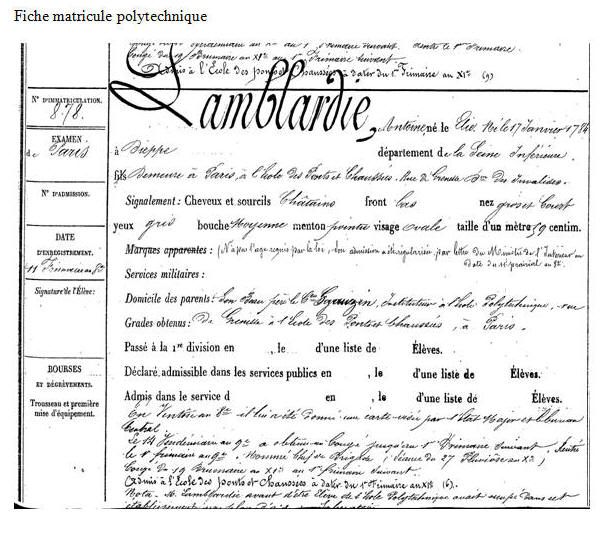 Fiche matricule polytechnique
Congé du 19 Brumaire au XIe au 1er Frimaire suivant
(Admis à l'École des ponts et Chaussées à dater du 1er Frimaire au XIe (9)
Lamblardie, Antoine né le 17 Janvier 1784
N° D'IMMATRICULATION.
878.
EXAMEN
de Paris
à Dieppe département de la Seine Inférieure.
fils Demeure à Paris, à l'École des Ponts et Chaussées, Rue de Grenelle Des Invalides.
N° D'ADMISSION.
Signalement : Cheveux et sourcils Châtains front bas nez gros et court
yeux gris bouche Moyenne menton pointu visage Ovale taille d'un mètre 59 centim.
DATE
D'ENREGISTREMENT.
11 Frimaire
Marques apparentes : (N'a pas l'age requis par la loi, son admission a été régularisée par lettre du Ministre de l'Intérieur en
Date du 11 prairial
Services militaires :
Signature de l'Élève :
Domicile des parents : Son Beau père le Sganzin, Instituteur à l'École Polytechnique, rue
Grades obtenus : de Grenelle à l'École des Ponts et Chaussées, à Paris.
Passé à la 1re division en , le d'une liste de Élèves.
BOURSES
ET DÉGRÈVEMENTS.
Trousseau et première
mise d'équipement.
Déclaré admissible dans les services publics en , le d'une liste de Élèves.
Admis dans le service d en , le d'une liste de Élèves.
En Ventôse il lui a été donné une carte visée par l'État Major et le Bureau
Central.
Le 14 Vendémiaire au 9e a obtenu un Congé jusqu'au 1er Brimaire suivant, Rentré
le 1er frimaire au 9e. Nommé Chef de Brigade (séance du 27 Pluviôse
Congé du 19 Brumaire au XIe au 1er frimaire suivant.
(Admis à l'École des ponts et Chaussées à dater du 1er Frimaire au XIe (6).
Nota. M. Lamblardie avant d'être Élève de l'École Polytechnique avait occupé dans cet